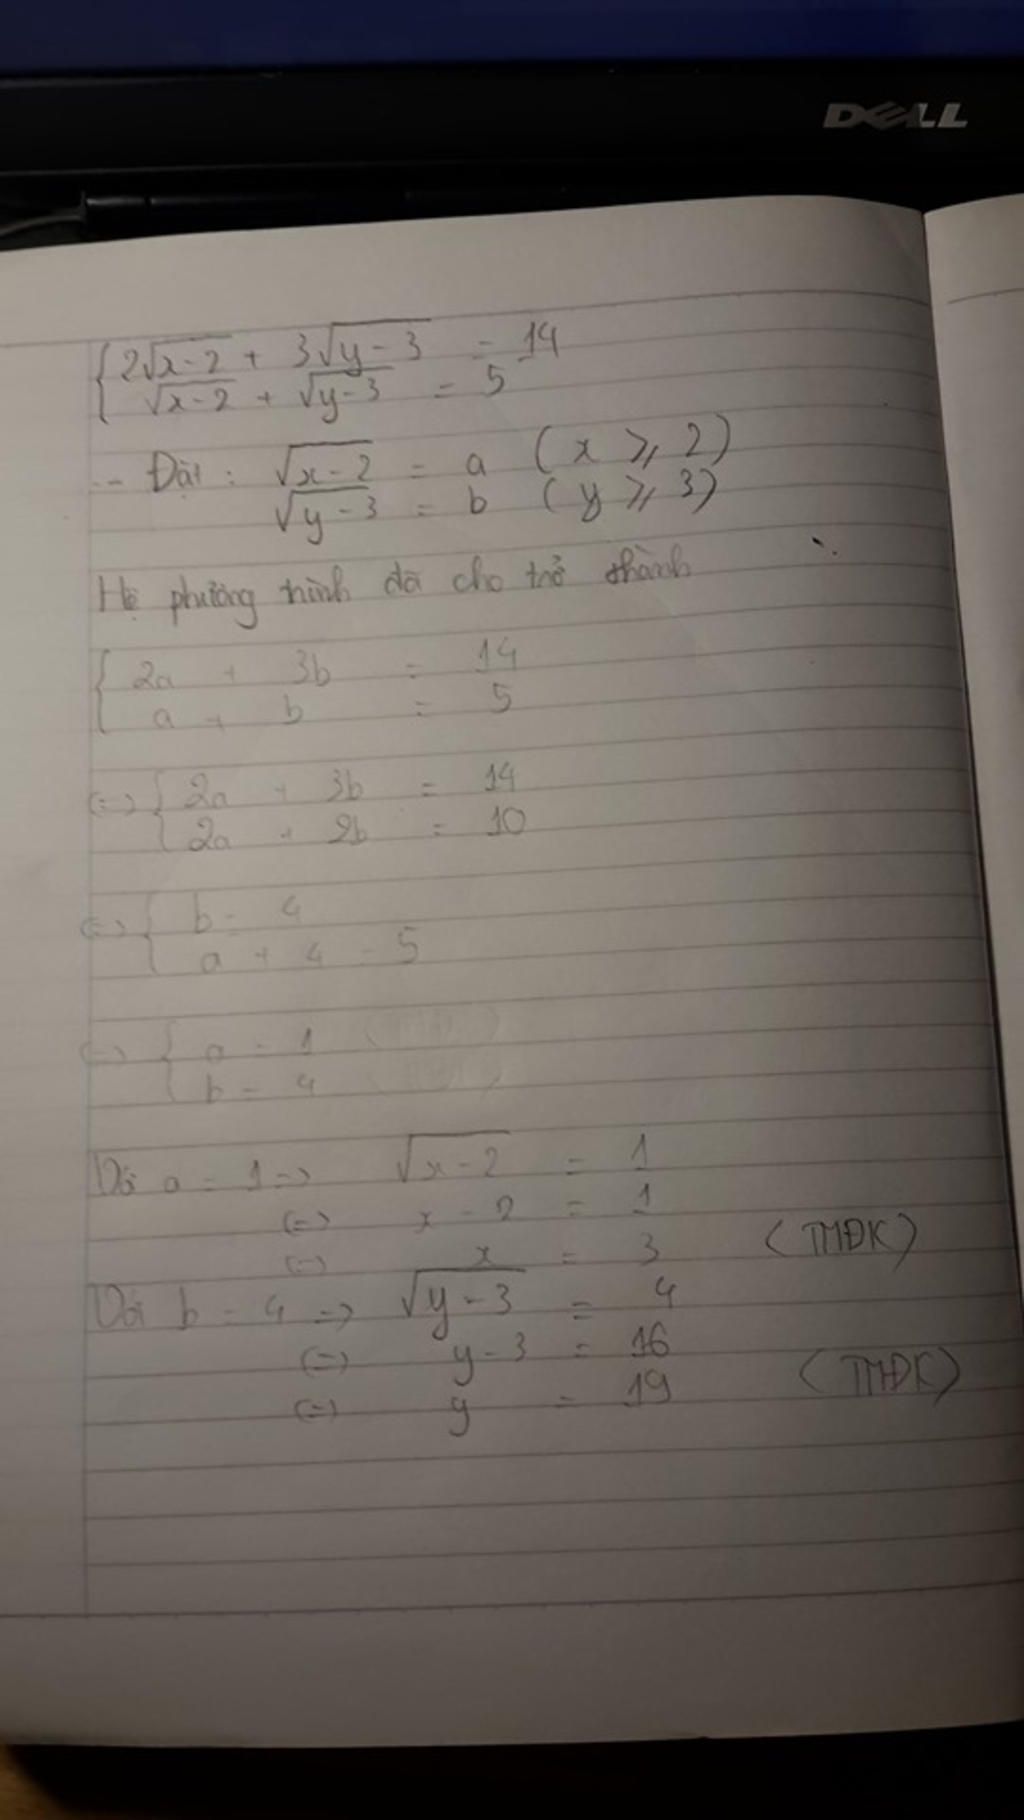 DELL
{ 2√x-2 + 3√y-3 = 14
√x-2 + √y-3 = 5
-- Đặt : √x-2 = a ( x ⩾ 2)
√y-3 = b ( y ⩾ 3)
Hệ phương trình đã cho trở thành
{ 2a + 3b = 14
a + b = 5
(=) { 2a + 3b = 14
2a + 2b = 10
(=) { b = 4
a + 4 = 5
(=) { a = 1
b = 4
Với a = 1 => √x-2 = 1
(=) x - 2 = 1
(=) x = 3 (TMĐK)
Với b = 4 => √y-3 = 4
(=) y-3 = 16
(=) y = 19 (TMĐK)